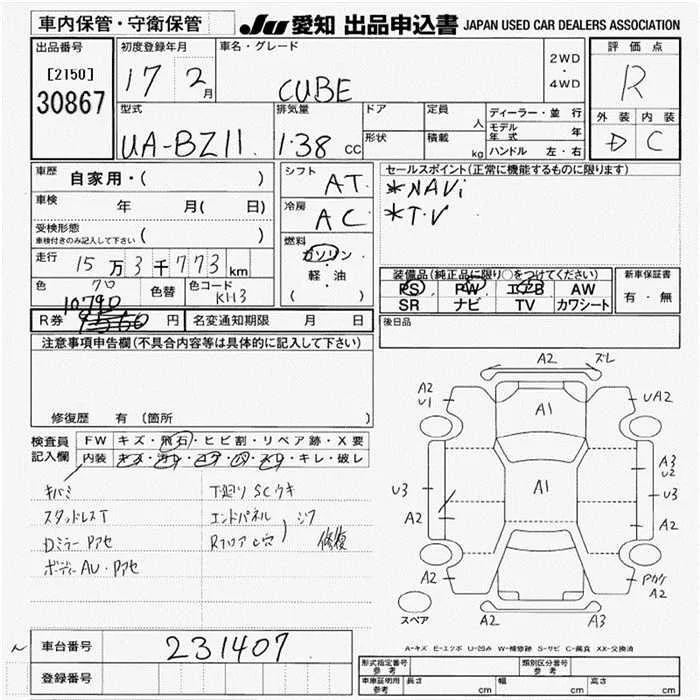 車内保管・守衛保管
JU 愛知 出品申込書 JAPAN USED CAR DEALERS ASSOCIATION
出品番号
[2150]
30867
初度登録年月
17 2月
車名・グレード
CUBE
2WD
・
4WD
評価点
R
外装 内装
D C
型式
UA-BZ11
排気量
1.38 cc
ドア
形状
定員 人
積載 kg
ディーラー・並行
モデル年式 年
ハンドル 左・右
車歴
自家用・( )
車検 年 月( 日)
受検形態
車検付きのみ記入して下さい ( )
走行 15万3千773km
色 クロ
色替
色コード KH3
シフト AT
冷房 AC
燃料
ガソリン
・
軽油
( )
セールスポイント(正常に機能するものに限ります)
*NAVi
*T.V
装備品(純正品に限り○をつけてください)
PS PW エアB AW
SR ナビ TV カワシート
新車保証書
有・無
10790
R券 円
名変通知期限 月 日
後日品
注意事項申告欄(不具合内容等は具体的に記入して下さい)
修復歴 有 (箇所 )
検査員記入欄
FW キズ・飛石・ヒビ割・リペア跡・X要
内装 キズ・汚レ・コゲ・穴・スレ・キレ・破レ
キバミ
スタッドレスT
Dミラー Pアセ
ボディーAU・Pアセ
下廻リ SCウキ
エンドパネル
Rフロア C穴
修復
A2 ズレ
A2
U1
A1
UA2
A3
U2
U3
A1
U3
A2
A2
A2
A2
A2
A3
スペア
A-キズ E-エクボ U-凹み W-補修跡 S-サビ C-腐食 XX-交換済
車台番号 231407
登録番号
形式指定番号
参考
類別区分番号
参考
車庫証明用
参考
長さ cm
幅 cm
高さ cm